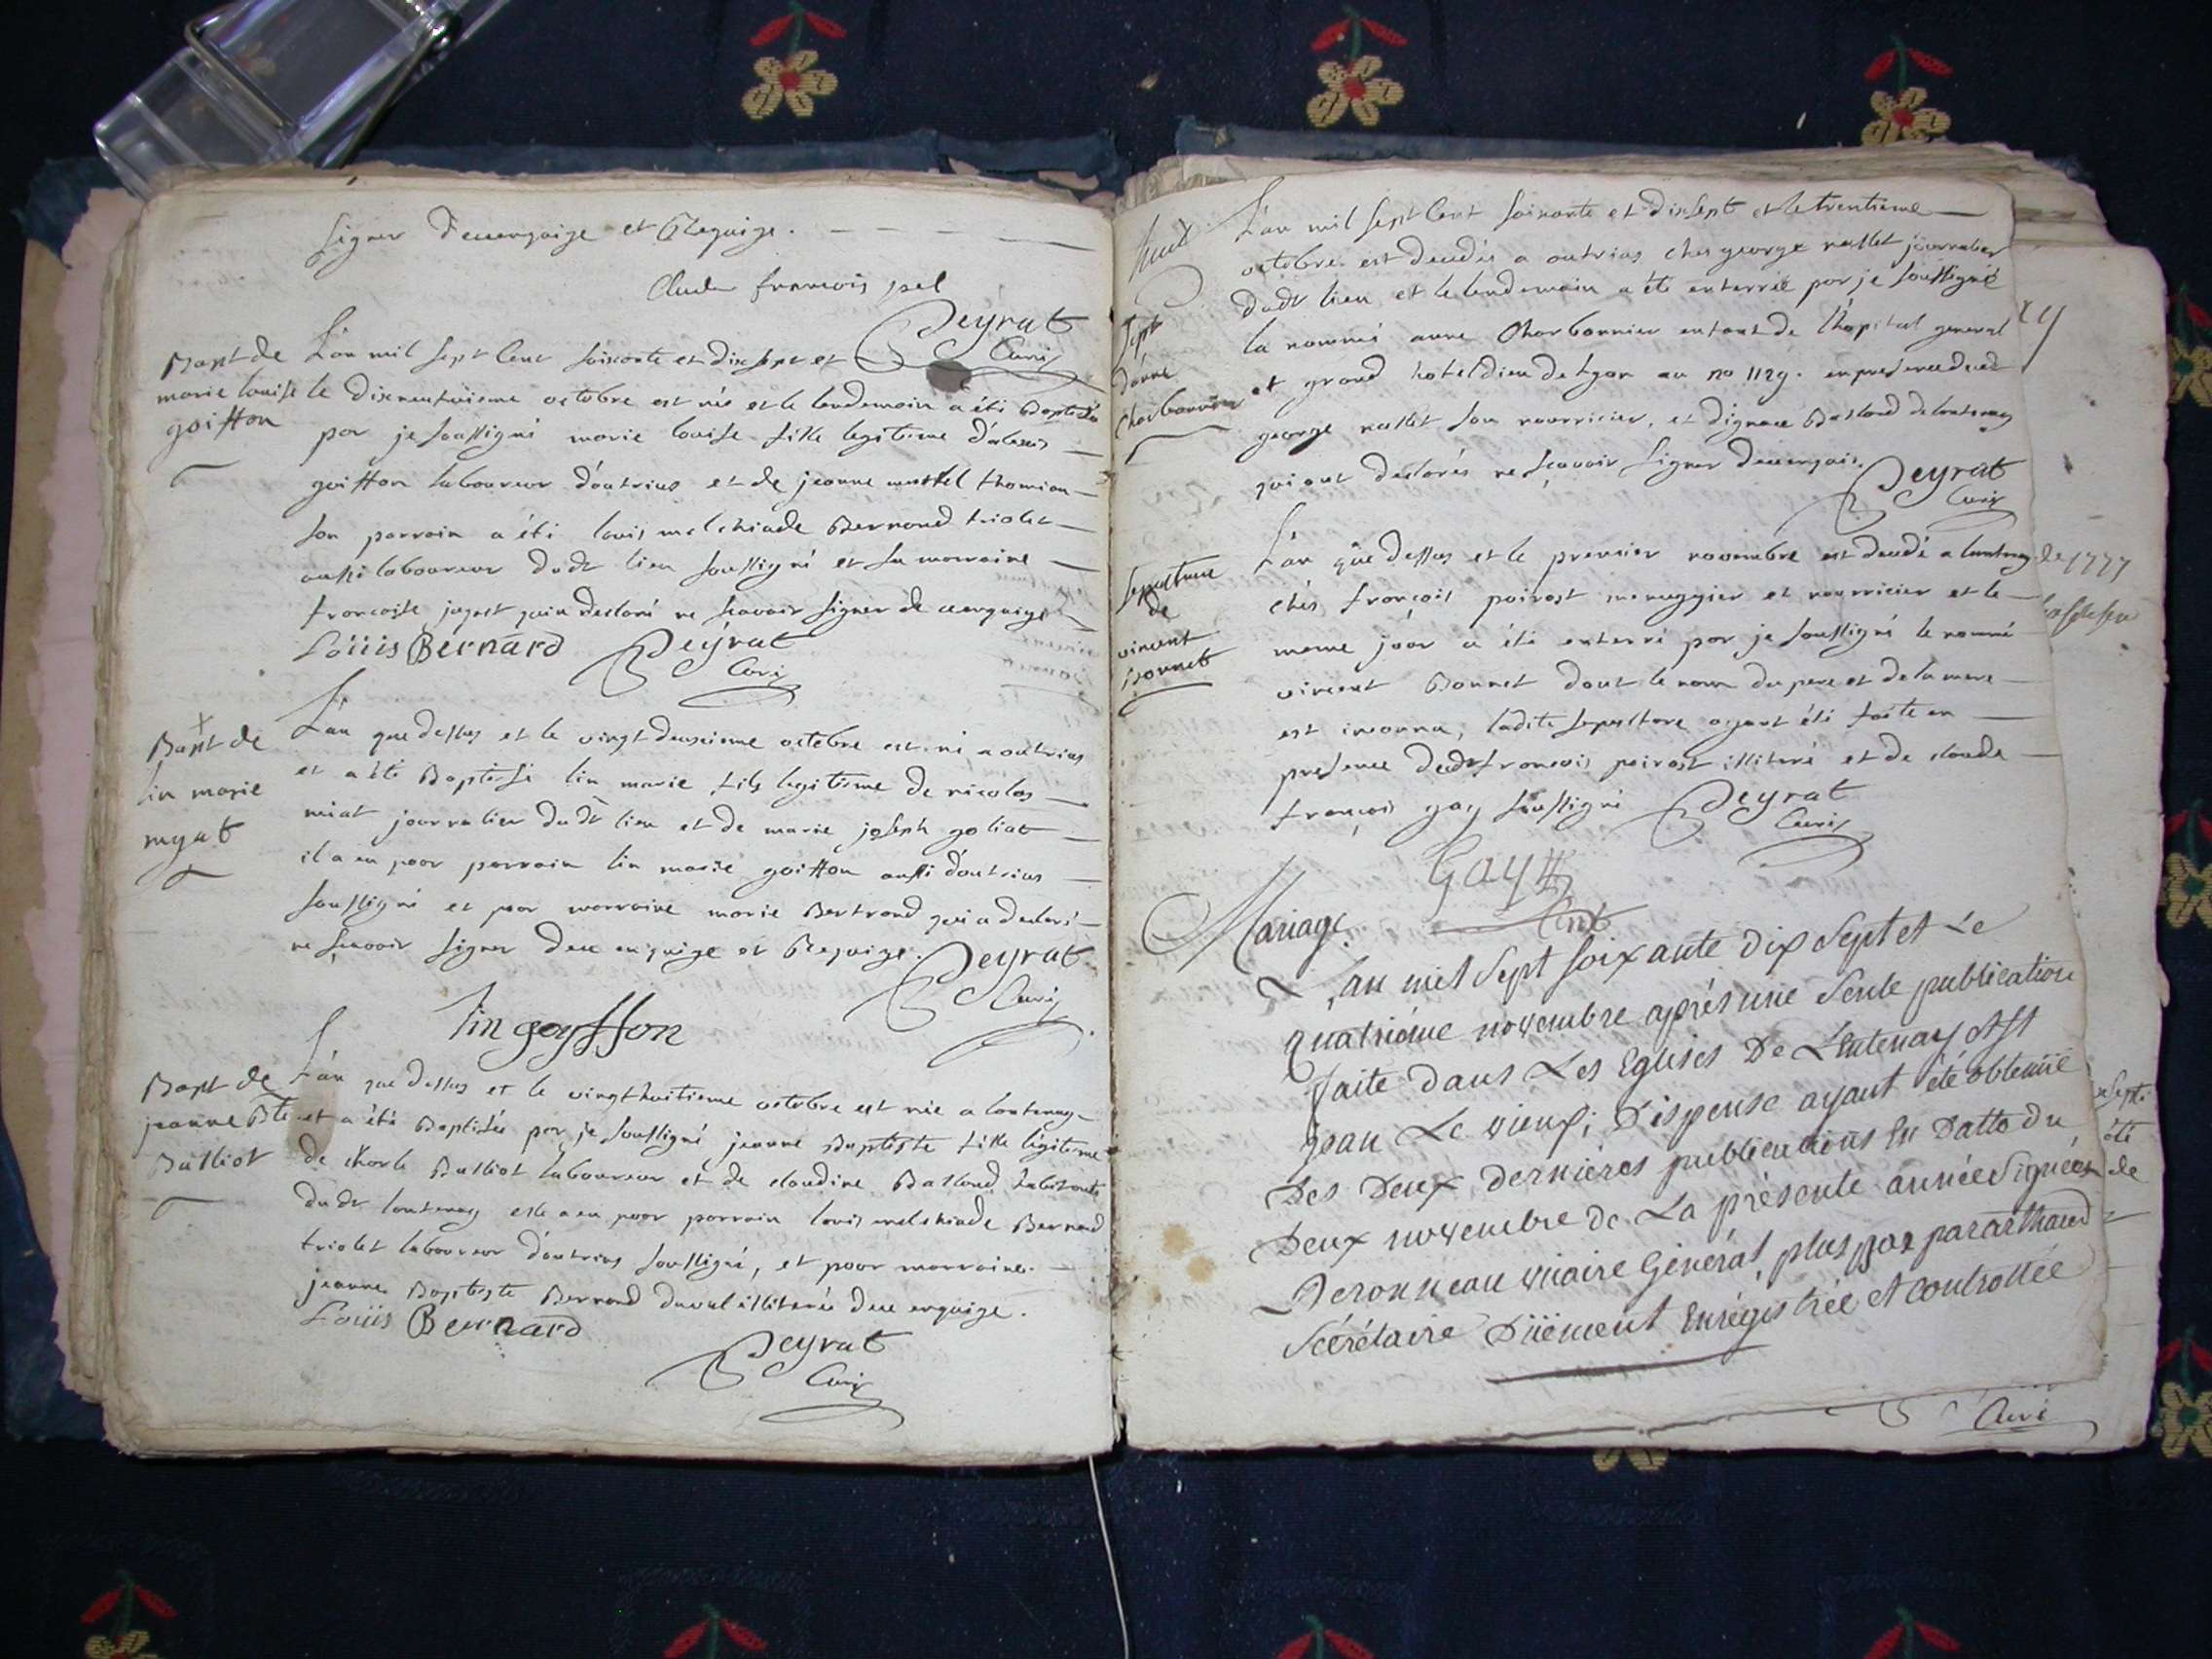 signer de ce enquise et Requise.
Claude françois pel
Peyrat
Curé
Bapt de
marie louise
goiffon
L'an mil sept Cent soixante et dix sept et
le dix neuvieme octobre est née et le lendemain a été Baptisée
par je soussigné marie louise fille legitime d'alexis
goiffon laboureur d'outrias et de jeanne
son parrain a été louis melchiade Bernard triolet
aussi laboureur dudt lieu soussigné et sa marraine
francoise jagnet qui a declaré ne scavoir signer de ce enquise
Loüis Bernard Peyrat
Curé
Bapt de
lin marie
myat
L'an que dessus et le vingt deuxieme octobre est né a outrias
et a été Baptisé lin marie fils legitime de nicolas
miat journalier dudt lieu et de marie joseph goliat
il a eu pour parrain lin marie goiffon aussi d'outrias
soussigné et pour marraine marie Bertrand qui a declaré
ne sçavoir signer de ce enquise et Requise.
Peyrat
Curé
lin goyffon
Bapt de
jeanne Bte
Balliot
L'an que dessus et le vingt huitieme octobre est née a lantenay
et a été Baptisée par je soussigné jeanne Baptiste fille légitime
de charle Balliot laboureur et de claudine Balland habitants
dudt lantenay elle a eu pour parrain louis melchiade Bernard
triolet laboureur d'outrias soussigné, et pour marraine
jeanne Baptiste Bernard duval illiterée de ce enquise.
Loüis Bernard
Peyrat
Curé
Sept
d'anne
Charbonnier
L'an mil sept Cent soixante et dix sept et le trentieme
octobre est decedée a outrias ches george journalier
dudt lieu et le lendemain a été enterrée par je soussigné
la nommée anne Charbonnier enfant de l'hopital general
et grand hotel dieu de lyon au no 1129. en presence dudt
george son nourricier, et d'ignace Balland de lantenay
qui ont declarés ne sçavoir signer de ce enquis.
Peyrat
Curé
Sepulture
de
vincent
Bonnet
L'an que dessus et le premier novembre est decedé a lantenay
chés françois poirost menuggier et nourricier et le
meme jour a été enterré par je soussigné le nommé
vincent Bonnet dont le nom du pere et de la mere
est inconnu, ladite sepulture ayant été faite en
presence dudt francois poirost illiteré et de claude
françois gay soussigné Peyrat
Curé
Gay
Mariage.
Cent
L'an mil Sept soixante dix Sept et Le
quatriéme novembre aprés une Seule publication
faite dans Les Eglises De Lentenay et St
jean Le vieux; Dispense ayant été obtenüe
Des Deux derniéres publications En Datte du
Deux novembre de La présente année Signée
De ronneau vicaire Général, plus par
Sécrétaire Düement Enrégistrée et controllée
de 1777
Sept
été
de
Curé